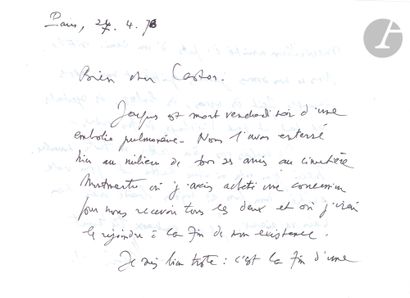 Paris, 27. 4. 76
Bien cher Castor.
Jacques est mort vendredi soir d'une
embolie pulmonaire. Nous l'avons enterré
hier au milieu de tous ses amis au cimetière
Montmartre où j'avais acheté une concession
pour nous recevoir tous les deux et où j'irai
le rejoindre à la fin de mon existence.
Je suis bien triste : c'est la fin d'une